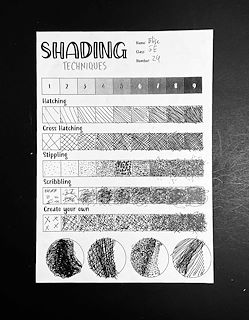 SHADING
TECHNIQUES
Name
Class
Number 24
1 2 3 4 5 6 7 8 9
Hatching
Cross Hatching
Stippling
Scribbling
Create your own